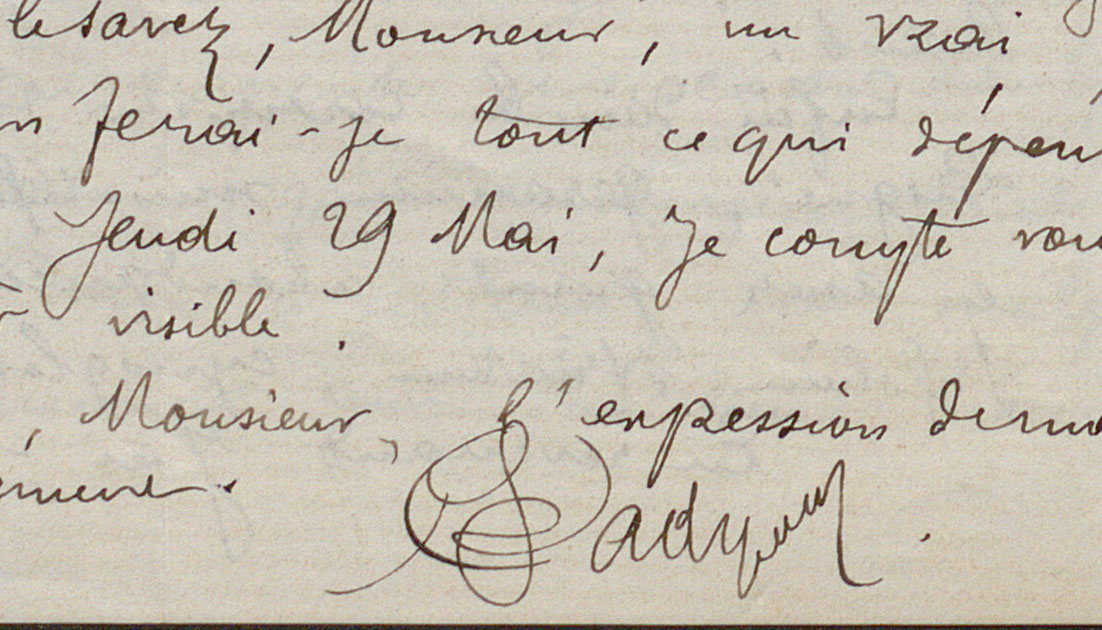 le savez, Monsieur, un vrai
ferai-je tout ce qui dépen
Jeudi 29 Mai, je compte vou
visible.
, Monsieur, l'expression de mo